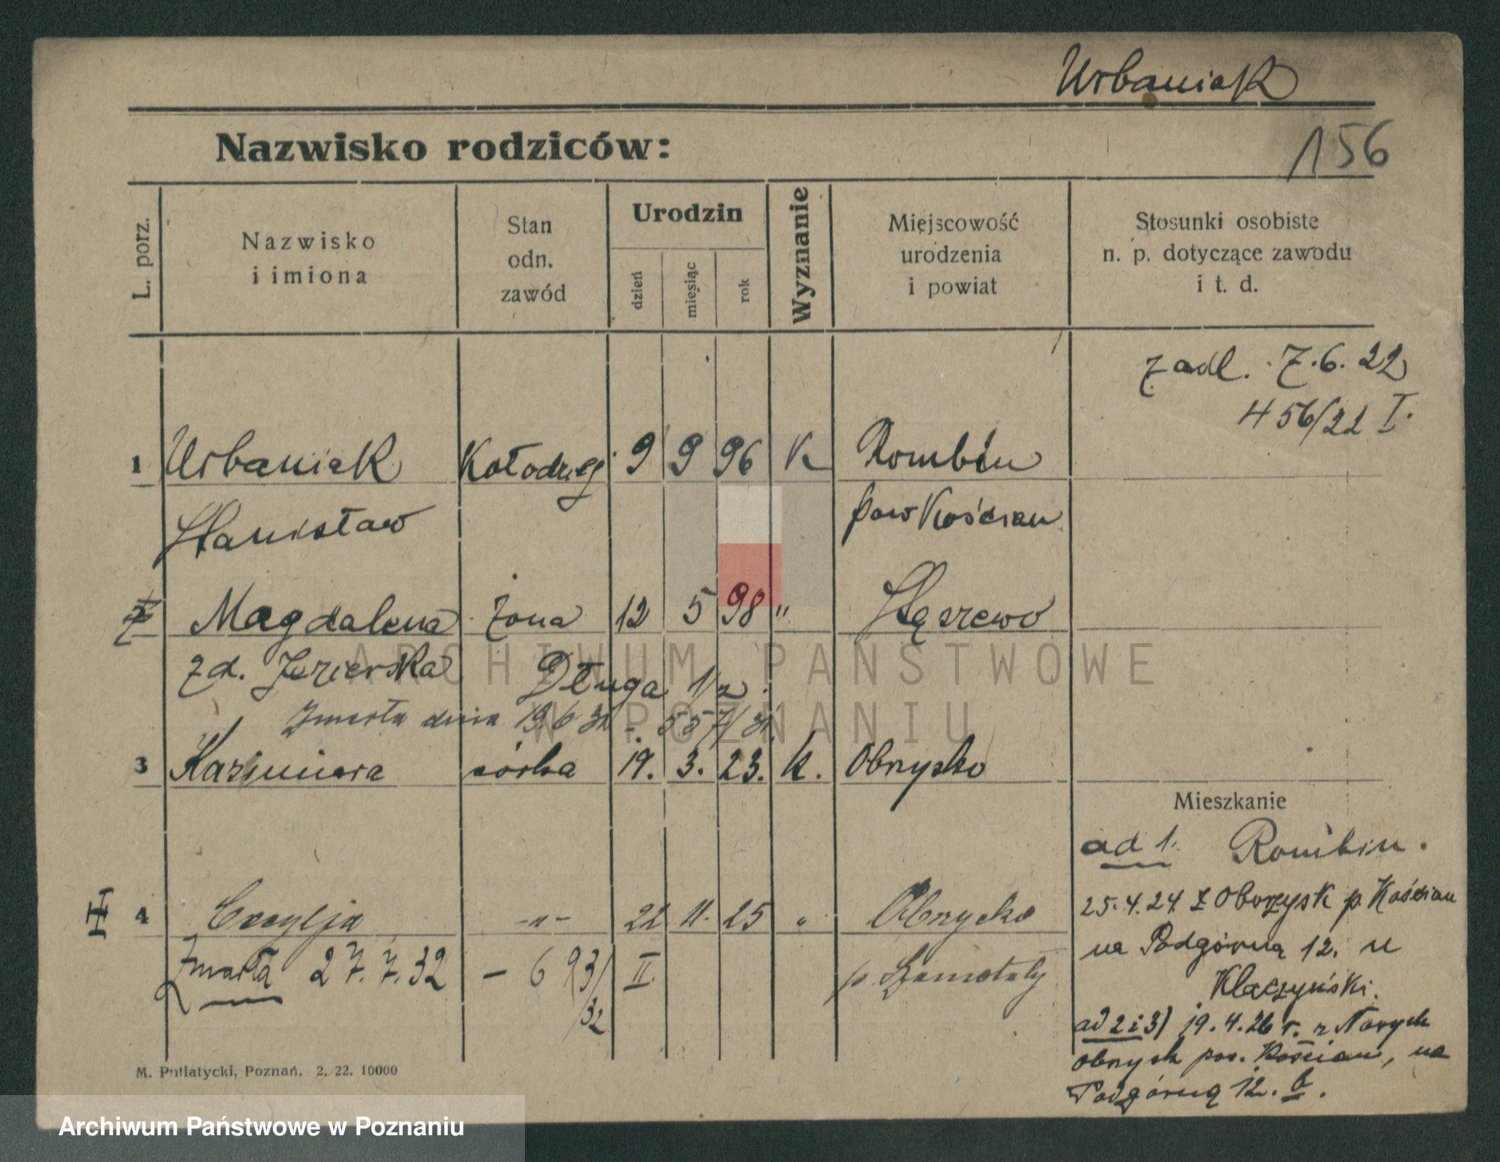 Urbaniak
156
Nazwisko rodziców:
L. porz.
Nazwisko
i imiona
Stan
odn.
zawód
Urodzin
dzień
miesiąc
rok
Wyznanie
Miejscowość
urodzenia
i powiat
Stosunki osobiste
n. p. dotyczące zawodu
i t. d.
zadl. 7.6.22
456/22 I.
1 Urbaniak Kołodziej 9 9 96 k Rombin
Stanisław pow Kościan
Magdalena żona 12 5 98 " Stęszewo
zd. Jezierska Długa 1/2.
Zmarła dnia 19.6 31 - 557/31.
3 Kazimiera córka 19. 3. 23. k. Obrzysko
Mieszkanie
ad 1. Rombin.
4 Cecylja -"- 22 11. 25 " Obrzycko
Zmarła 27.7.32 - 693/32 II p. Szamotuły
25.4.24 z Obrzysk p Kościan
na Podgórną 12. u
Klaczyński.
ad 2 i 3) 19.4.26 r. z
obrzysk pow. Kościan, na
Podgórną 12. b.
M. Putiatycki, Poznań. 2, 22. 10000
ARCHIWUM PAŃSTWOWE
W POZNANIU
Archiwum Państwowe w Poznaniu